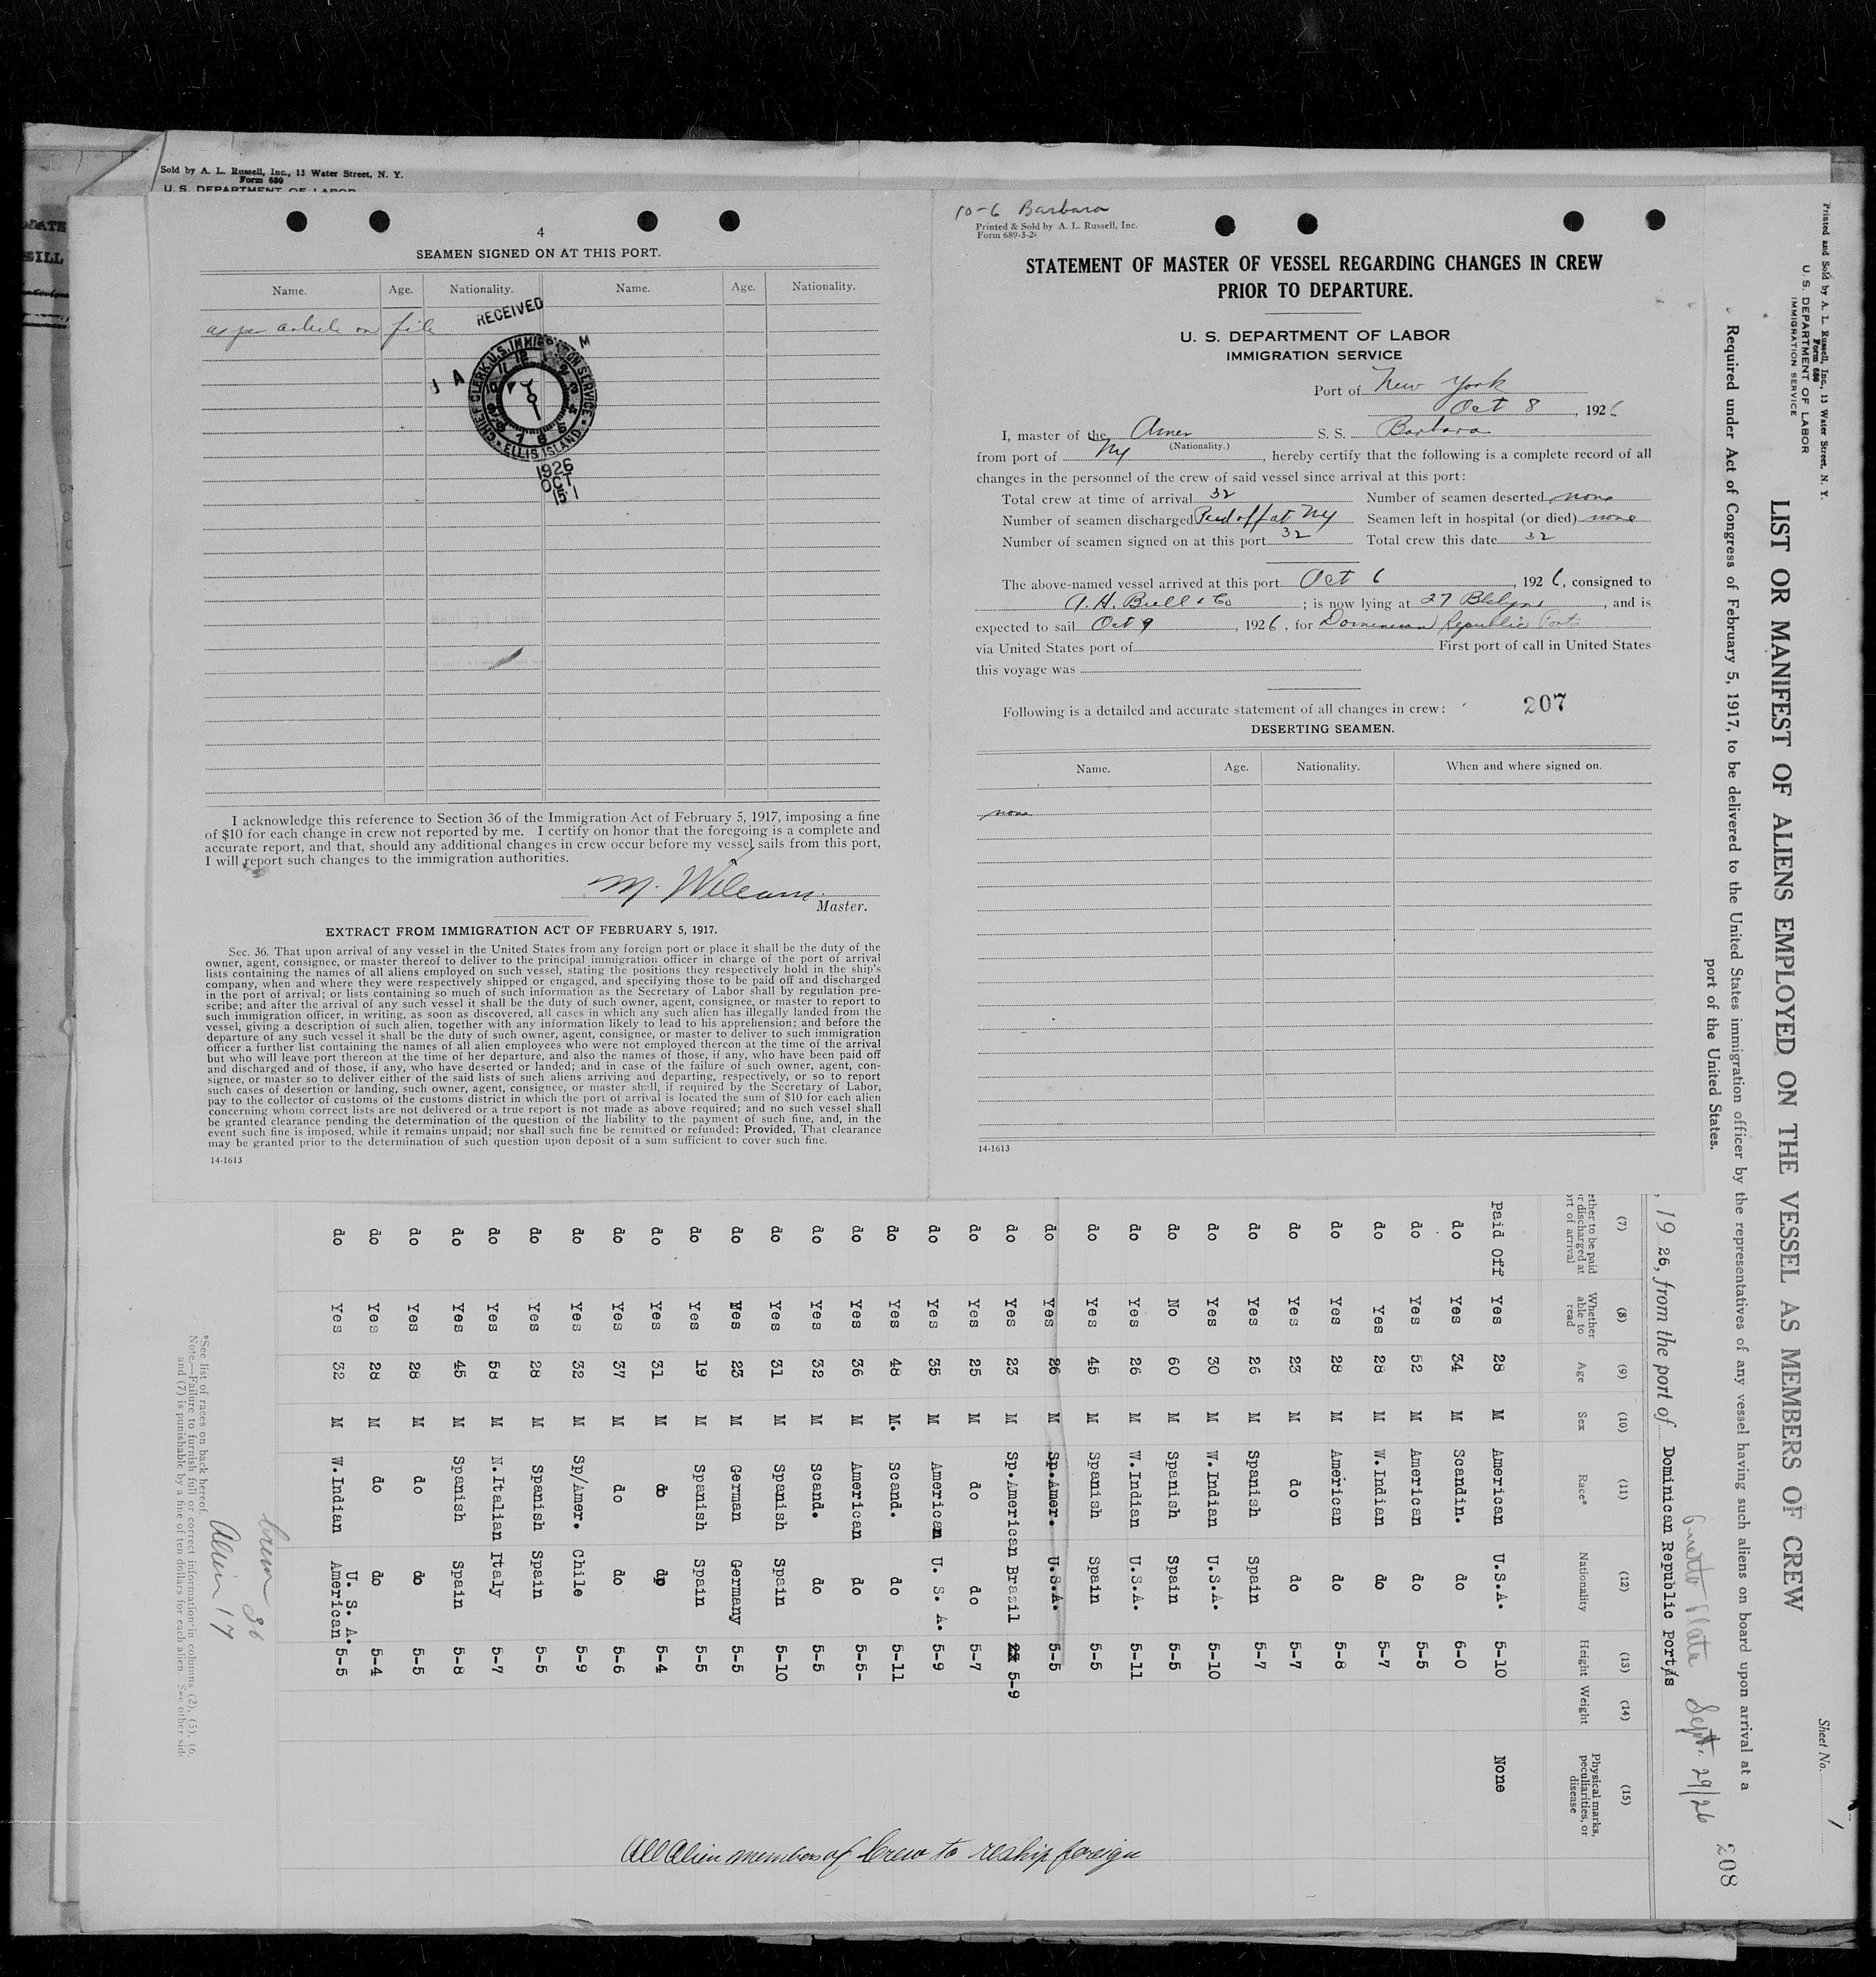 Sold by A. L. Russell, Inc., 13 Water Street, N. Y.
Form 680
U. S. DEPARTMENT OF LABOR
4
SEAMEN SIGNED ON AT THIS PORT.
Name. Age. Nationality. Name. Age. Nationality.
as per article on file
RECEIVED
CHIEF CLERK, U.S. IMMIGRATION SERVICE
ELLIS ISLAND
1926
OCT
I acknowledge this reference to Section 36 of the Immigration Act of February 5, 1917, imposing a fine
of $10 for each change in crew not reported by me. I certify on honor that the foregoing is a complete and
accurate report, and that, should any additional changes in crew occur before my vessel sails from this port,
I will report such changes to the immigration authorities.
M.
Master.
EXTRACT FROM IMMIGRATION ACT OF FEBRUARY 5, 1917.
Sec. 36. That upon arrival of any vessel in the United States from any foreign port or place it shall be the duty of the
owner, agent, consignee, or master thereof to deliver to the principal immigration officer in charge of the port of arrival
lists containing the names of all aliens employed on such vessel, stating the positions they respectively hold in the ship's
company, when and where they were respectively shipped or engaged, and specifying those to be paid off and discharged
in the port of arrival; or lists containing so much of such information as the Secretary of Labor shall by regulation pre-
scribe; and after the arrival of any such vessel it shall be the duty of such owner, agent, consignee, or master to report to
such immigration officer, in writing, as soon as discovered, all cases in which any such alien has illegally landed from the
vessel, giving a description of such alien, together with any information likely to lead to his apprehension; and before the
departure of any such vessel it shall be the duty of such owner, agent, consignee, or master to deliver to such immigration
officer a further list containing the names of all alien employees who were not employed thereon at the time of the arrival
but who will leave port thereon at the time of her departure, and also the names of those, if any, who have been paid off
and discharged and of those, if any, who have deserted or landed; and in case of the failure of such owner, agent, con-
signee, or master so to deliver either of the said lists of such aliens arriving and departing, respectively, or so to report
such cases of desertion or landing, such owner, agent, consignee, or master shall, if required by the Secretary of Labor,
pay to the collector of customs of the customs district in which the port of arrival is located the sum of $10 for each alien
concerning whom correct lists are not delivered or a true report is not made as above required; and no such vessel shall
be granted clearance pending the determination of the question of the liability to the payment of such fine, and, in the
event such fine is imposed, while it remains unpaid; nor shall such fine be remitted or refunded: Provided, That clearance
may be granted prior to the determination of such question upon deposit of a sum sufficient to cover such fine.
14-1613
10-6 Barbara
Printed & Sold by A. L. Russell, Inc.
Form 689-3-26
STATEMENT OF MASTER OF VESSEL REGARDING CHANGES IN CREW
PRIOR TO DEPARTURE.
U. S. DEPARTMENT OF LABOR
IMMIGRATION SERVICE
Port of New York
Oct 8, 1926
I, master of the Amer S. S. Barbara
(Nationality.)
from port of NY, hereby certify that the following is a complete record of all
changes in the personnel of the crew of said vessel since arrival at this port:
Total crew at time of arrival 32 Number of seamen deserted none
Number of seamen discharged Paid off at NY Seamen left in hospital (or died) none
Number of seamen signed on at this port 32 Total crew this date 32
The above-named vessel arrived at this port Oct 6, 1926, consigned to
A. H. Bull & Co; is now lying at 27 Bklyn, and is
expected to sail Oct 9, 1926, for Dominican Republic Ports
via United States port of First port of call in United States
this voyage was
Following is a detailed and accurate statement of all changes in crew: 207
DESERTING SEAMEN.
Name. Age. Nationality. When and where signed on.
none
14-1613
Printed and Sold by A. L. Russell, Inc., 13 Water Street, N. Y.
Form 680
U. S. DEPARTMENT OF LABOR
IMMIGRATION SERVICE
Sheet No. 1
LIST OR MANIFEST OF ALIENS EMPLOYED ON THE VESSEL AS MEMBERS OF CREW
208
Required under Act of Congress of February 5, 1917, to be delivered to the United States immigration officer by the representatives of any vessel having such aliens on board upon arrival at a
port of the United States.
Puerto Plata Sept. 29/26
, 1926, from the port of Dominican Republic Ports
(7) (8) (9) (10) (11) (12) (13) (14) (15)
Whether able to read Age Sex Race* Nationality Height Weight Physical marks, peculiarities, or disease
Paid Off Yes 28 M American U.S.A. 5-10 None
do Yes 34 M Scandin. do 6-0
do Yes 52 M American do 5-5
do Yes 28 M W.Indian do 5-7
do Yes 28 M American do 5-8
do Yes 23 M do do 5-7
do Yes 26 M Spanish Spain 5-7
do Yes 30 M W.Indian U.S.A. 5-10
do No 60 M Spanish Spain 5-5
do Yes 26 M W.Indian U.S.A. 5-11
do Yes 45 M Spanish Spain 5-5
do Yes 26 M Sp.Amer. U.S.A. 5-5
do Yes 23 M Sp.American Brazil 5-9
do Yes 25 M do do 5-7
do Yes 35 M American U. S. A. 5-9
do Yes 48 M. Scand. do 5-11
do Yes 36 M American do 5-5-
do Yes 32 M Scand. do 5-5
do Yes 31 M Spanish Spain 5-10
do Yes 23 M German Germany 5-5
do Yes 19 M Spanish Spain 5-5
do Yes 31 M do do 5-4
do Yes 37 M do do 5-6
do Yes 32 M Sp/Amer. Chile 5-9
do Yes 28 M Spanish Spain 5-5
do Yes 58 M N.Italian Italy 5-7
do Yes 45 M Spanish Spain 5-8
do Yes 28 M do do 5-5
do Yes 28 M do do 5-4
do Yes 32 M W.Indian U. S. A. American 5-5
All Alien members of Crew to reship foreign
Crew 36
Alien 17
*See list of races on back hereof.
Note.—Failure to furnish full or correct information in columns (2), (5), (6,
and (7) is punishable by a fine of ten dollars for each alien. See other side